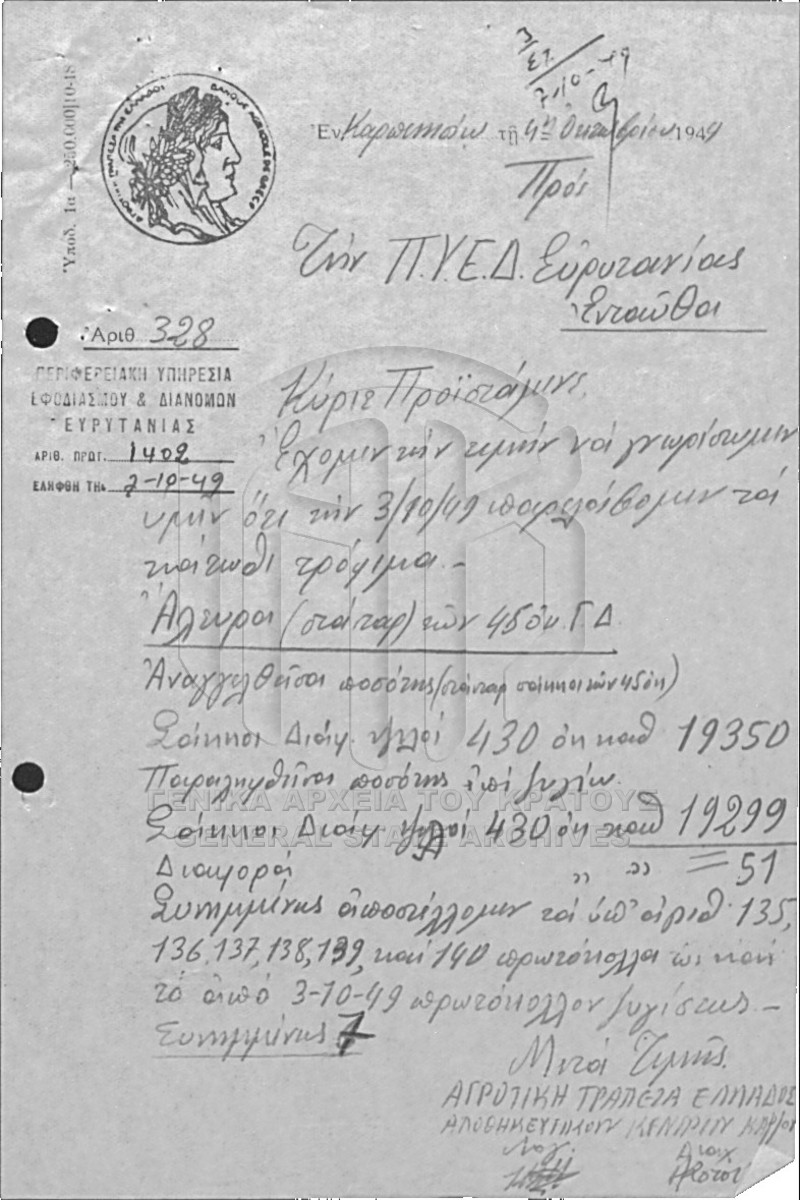 3/ΕΤ.
7-10-49
Ὑποδ. 1α — 250.000|10-48
ΑΓΡΟΤΙΚΗ ΤΡΑΠΕΖΑ ΤΗΣ ΕΛΛΑΔΟΣ BANQUE AGRICOLE DE GRECE
Ἐν Καρπενησίῳ τῇ 4ῃ Ὀκτωβρίου 1949
Πρός
Τήν Π.Υ.Ε.Δ. Εὐρυτανίας
Ἐνταῦθα
Ἀριθ 328
ΠΕΡΙΦΕΡΕΙΑΚΗ ΥΠΗΡΕΣΙΑ
ΕΦΟΔΙΑΣΜΟΥ & ΔΙΑΝΟΜΩΝ
ΕΥΡΥΤΑΝΙΑΣ
ΑΡΙΘ. ΠΡΩΤ. 1402
ΕΛΗΦΘΗ ΤΗν 7-10-49
Κύριε Προϊστάμενε,
Ἔχομεν τήν τιμήν νά γνωρίσωμεν
υμῖν ὅτι τήν 3/10/49 παρελάβομεν τά
κάτωθι τρόφιμα.-
Ἄλευρα (στάνταρ) τῶν 45 ὀκ. Γ Δ.
Ἀναγγελθεῖσα ποσότης (στάνταρ σάκκοι τῶν 45 ὀκ)
Σάκκοι Διάφ. ψιλοί 430 ὀκ καθ 19350
Παραληφθεῖσα ποσότης ἐπί ζυγίῳ.
Σάκκοι Διάφ ψιλοί 430 ὀκ καθ 19299
Διαφορά " " = 51
Συνημμένως ἀποστέλλομεν τά ὑπ' ἀριθ 135,
136, 137, 138, 139, καί 140 πρωτόκολλα ὡς καί
τό ἀπό 3-10-49 πρωτόκολλον ζυγίσεως –
Συνημμένως 7
Μετά Τιμῆς.
ΑΓΡΟΤΙΚΗ ΤΡΑΠΕΖΑ ΕΛΛΑΔΟΣ
ΑΠΟΘΗΚΕΥΤΙΚΟΝ ΚΕΝΤΡΟΝ
ΓΕΝΙΚΑ ΑΡΧΕΙΑ ΤΟΥ ΚΡΑΤΟΥΣ
GENERAL STATE ARCHIVES